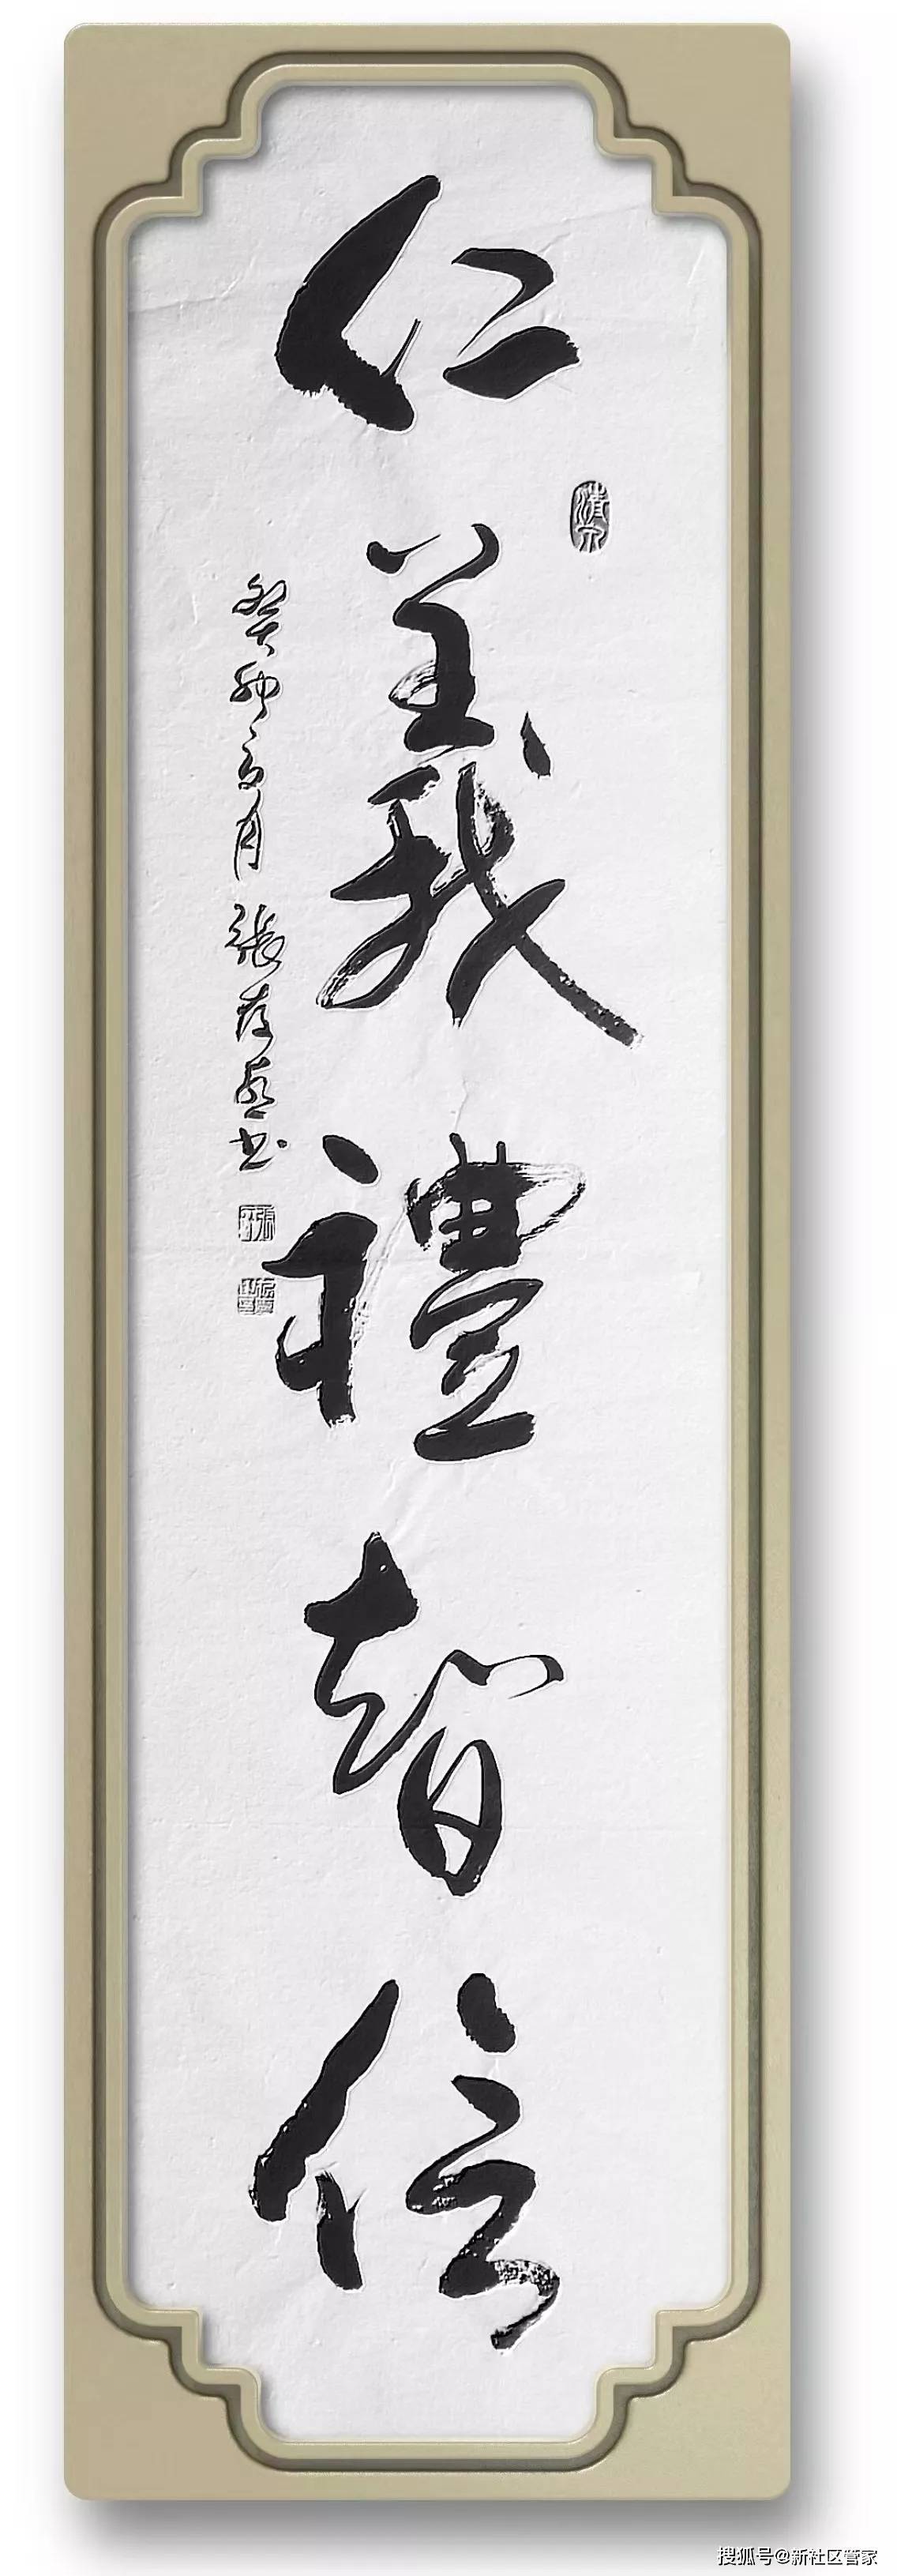 仁義禮智信
癸卯高月 張 書
清風
搜狐号@新社区管家